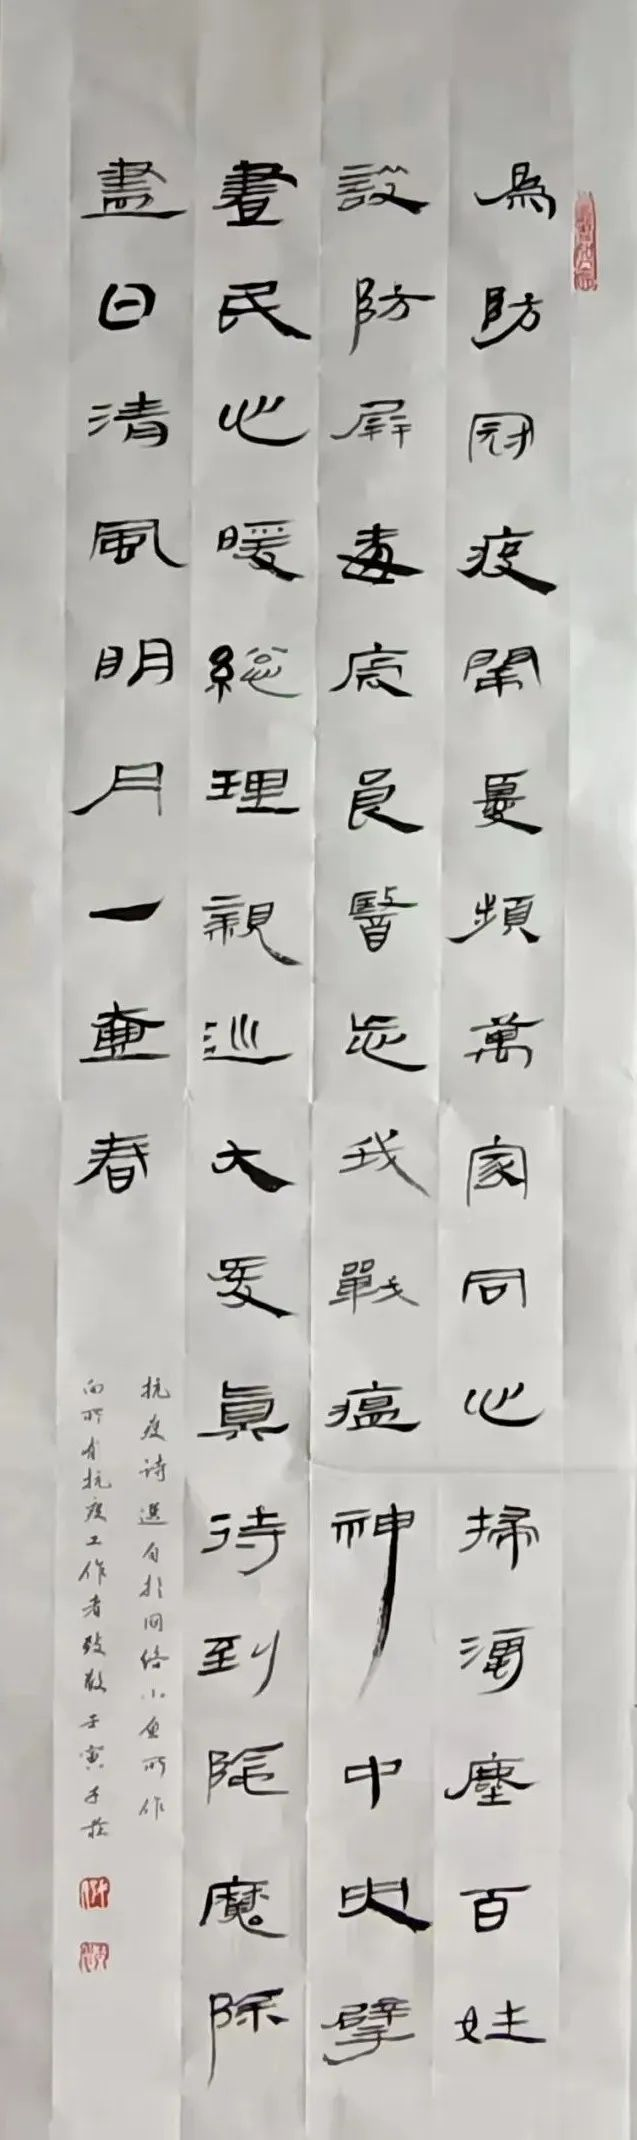 為防冠疫頻萬家同心掃塵百姓
設防屏毒良醫忘我戰瘟神中央擘
畫民心暖總理親巡大爱真待到魔除
盡日清風明月一春
抗疫诗選自於网络小鱼所作
向所有抗疫工作者致敬壬寅